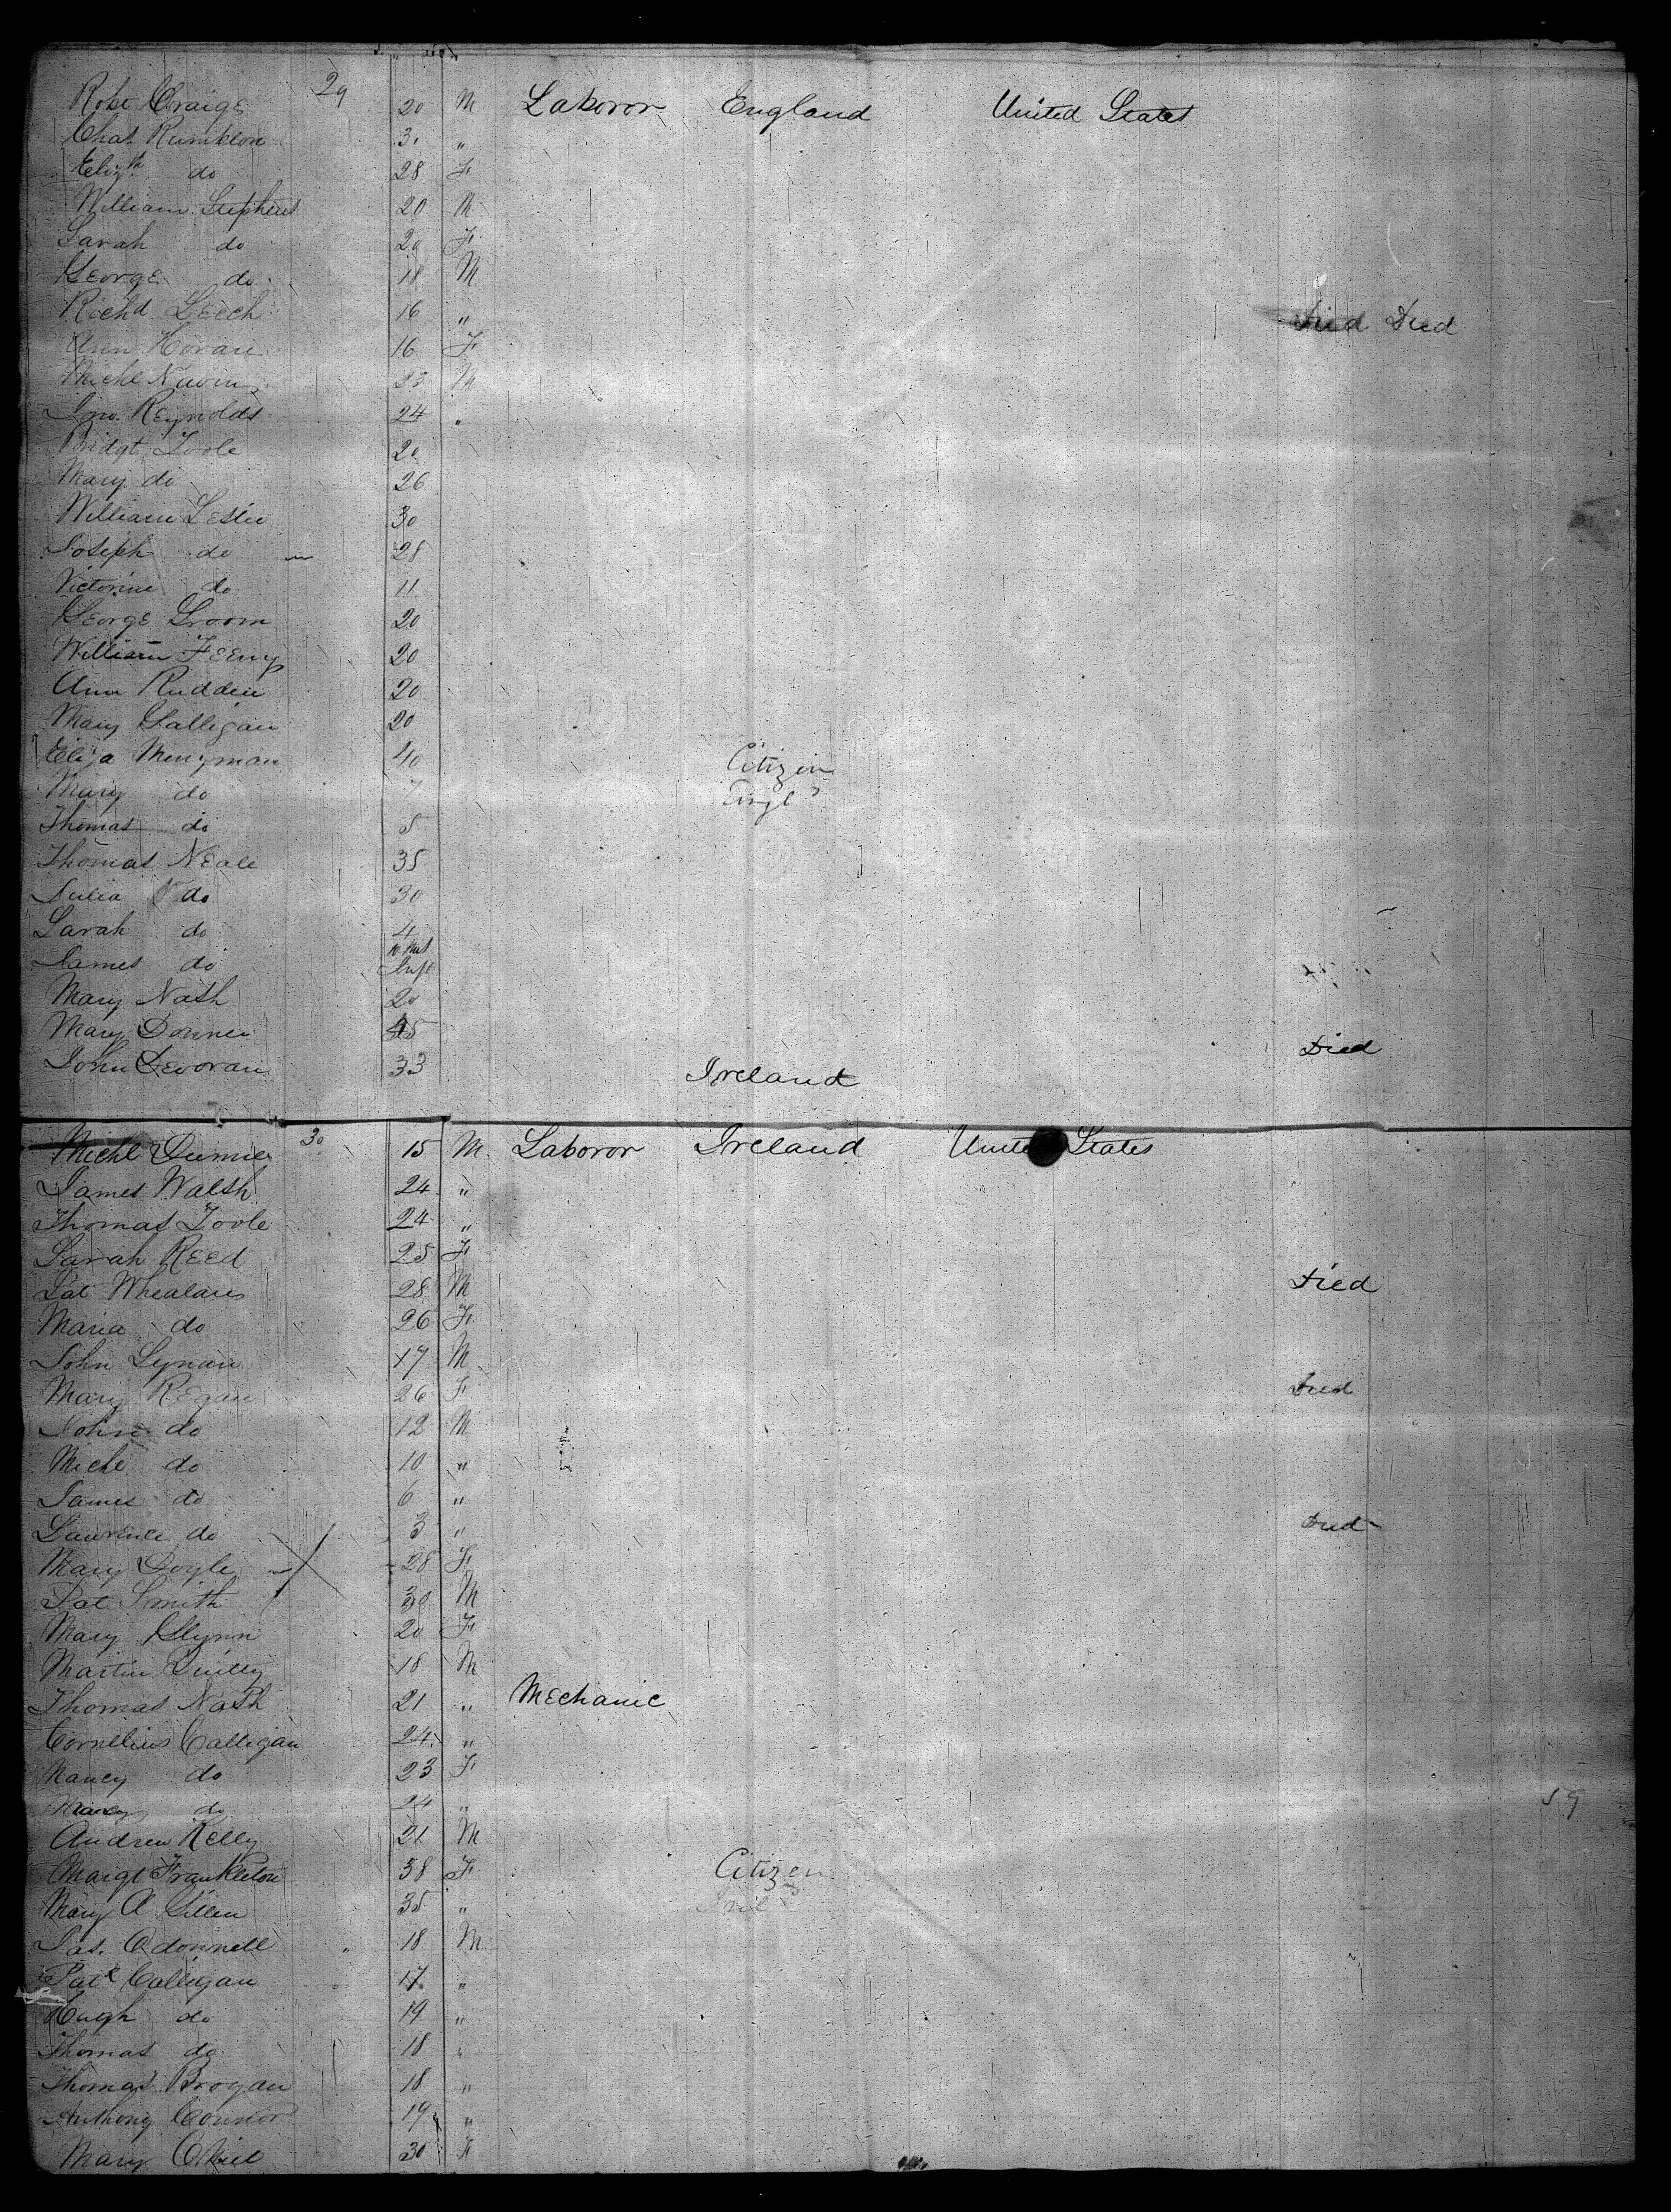 29
Robt Craige 20 M Laboror England United States
Chas Rumblon 3. "
Elizth do 28 F
William Stephens 20 M
Sarah do 20 F
George do 18 M
Richd Leech 16 " Died Died
Ann Horan 16 F
Michl Navin 23 M
Jno. Reynolds 24 "
Bridgt Toole 20
Mary do 26
William Leslie 30
Joseph do 28
Victorine do 11
George Groom 20
William Feeny 20
Ann Rudden 20
Mary Galligan 20
Eliza Merryman 40 Citizen
Mary do 7 Engld
Thomas do 5
Thomas Neale 35
Julia do 30
Sarah do 4
James do Inft
Mary Nash 20
Mary Donner 45 Died
John Devoran 33 Ireland
30
Michl 15 M Laboror Ireland United States
James Walsh 24 "
Thomas Toole 24 "
Sarah Reed 25 F
Pat Whealan 28 M Died
Maria do 26 F
John Lynan 17 M
Mary Regan 26 F Died
John do 12 M
Michl do 10 "
James do 6 "
Lawrence do 3 " Died
Mary Doyle 28 F
Pat Smith 30 M
Mary Glynn 20 F
Martin Quilty 18 M
Thomas Nash 21 " Mechanic
Cornelius Calligan 24 "
Nancy do 23 F
Mary do 24 "
59
Andrew Kelly 21 M
Margt Frankleton 38 F Citizen
Mary A. Gillen 35 " Ireld
Jas. Odonnell 18 M
Patk Calligan 17 "
Hugh do 19 "
Thomas do 18 "
Thomas Brogan 18 "
Anthony Connor 19 "
Mary ONeil 30 F